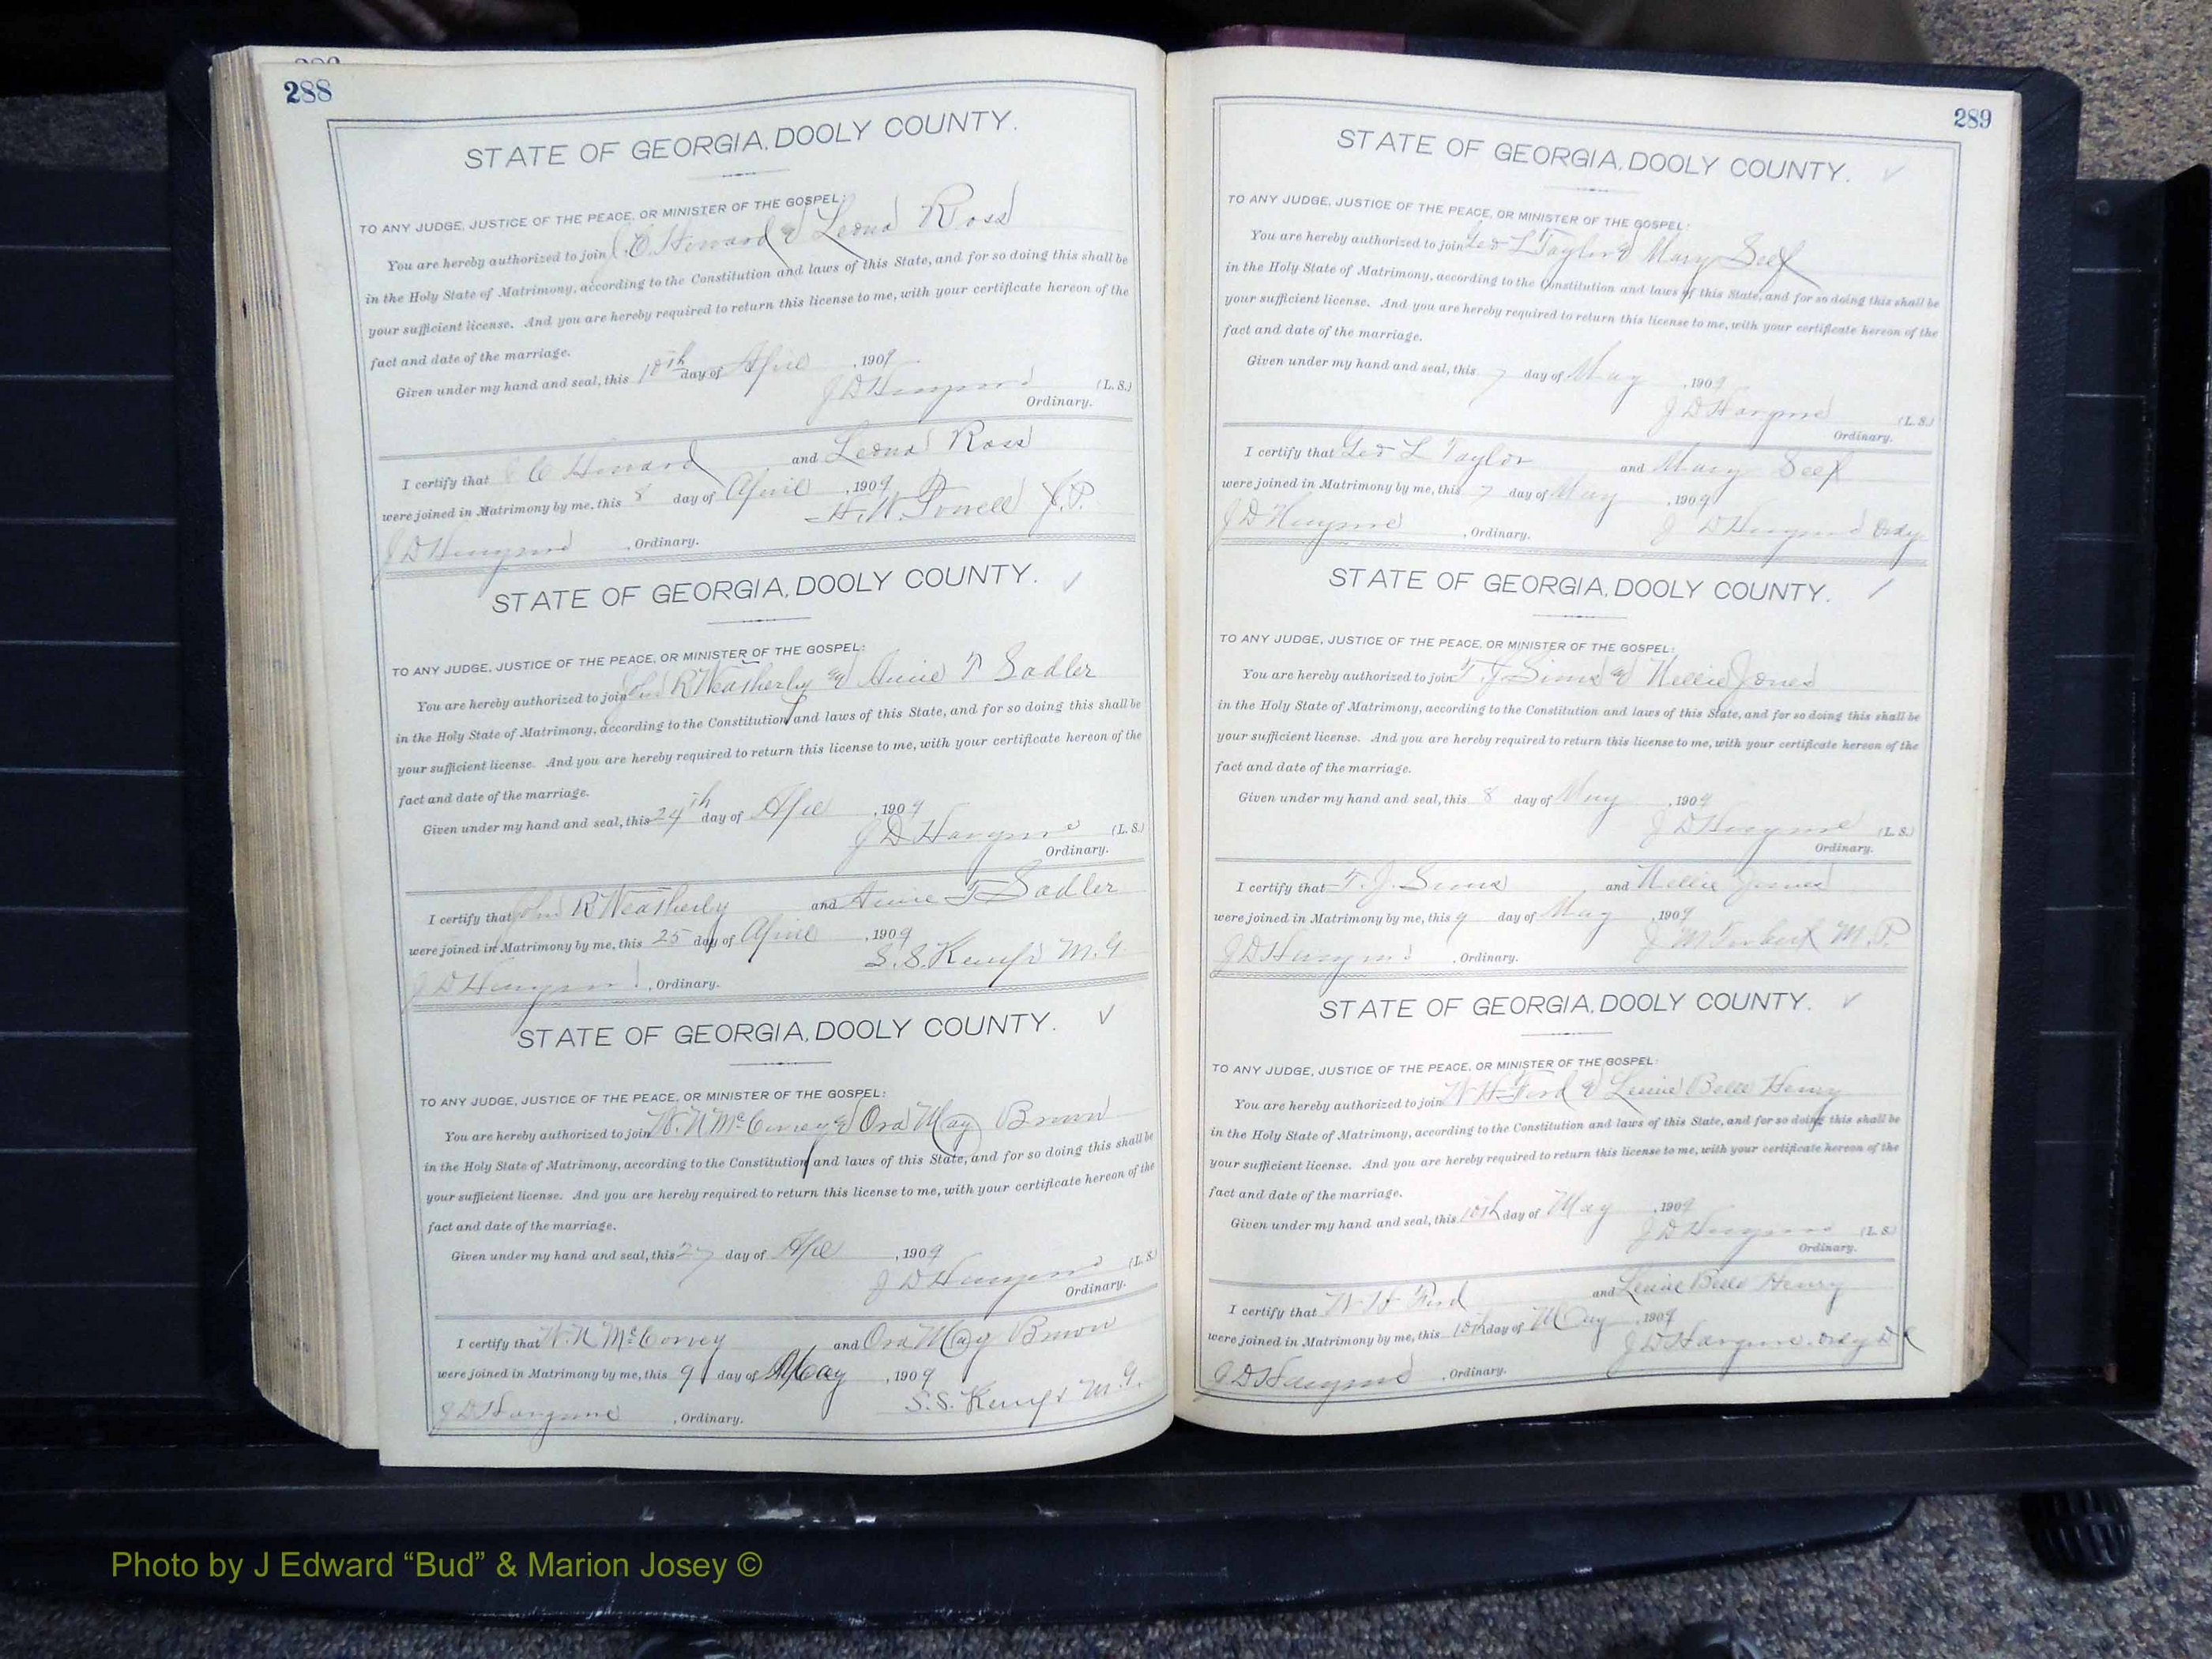 288
STATE OF GEORGIA, DOOLY COUNTY.
TO ANY JUDGE, JUSTICE OF THE PEACE, OR MINISTER OF THE GOSPEL:
You are hereby authorized to join C. Howard & Leona Ross
in the Holy State of Matrimony, according to the Constitution and laws of this State, and for so doing this shall be
your sufficient license. And you are hereby required to return this license to me, with your certificate hereon of the
fact and date of the marriage.
Given under my hand and seal, this day of April, 1909
J D Hargrove (L. S.)
Ordinary.
I certify that C Howard and Leona Ross
were joined in Matrimony by me, this 8 day of April, 1909
Powell J.P.
J D Hargrove, Ordinary.
STATE OF GEORGIA, DOOLY COUNTY.
TO ANY JUDGE, JUSTICE OF THE PEACE, OR MINISTER OF THE GOSPEL:
You are hereby authorized to join John R Weatherly & Annie T Sadler
in the Holy State of Matrimony, according to the Constitution and laws of this State, and for so doing this shall be
your sufficient license. And you are hereby required to return this license to me, with your certificate hereon of the
fact and date of the marriage.
Given under my hand and seal, this 24th day of Apl, 1909
J D Hargrove (L. S.)
Ordinary.
I certify that John R Weatherly and Annie T Sadler
were joined in Matrimony by me, this 25 day of April, 1909
S. S. Kemp M. G.
J D Hargrove, Ordinary.
STATE OF GEORGIA, DOOLY COUNTY.
TO ANY JUDGE, JUSTICE OF THE PEACE, OR MINISTER OF THE GOSPEL:
You are hereby authorized to join W. N & Ora May Brown
in the Holy State of Matrimony, according to the Constitution and laws of this State, and for so doing this shall be
your sufficient license. And you are hereby required to return this license to me, with your certificate hereon of the
fact and date of the marriage.
Given under my hand and seal, this 27 day of Apl, 1909
J D Hargrove (L. S.)
Ordinary.
I certify that W. N and Ora May Brown
were joined in Matrimony by me, this 9 day of May, 1909
S. S. Kemp M. G.
J D Hargrove, Ordinary.
289
STATE OF GEORGIA, DOOLY COUNTY.
TO ANY JUDGE, JUSTICE OF THE PEACE, OR MINISTER OF THE GOSPEL:
You are hereby authorized to join Geo L Taylor & Mary
in the Holy State of Matrimony, according to the Constitution and laws of this State, and for so doing this shall be
your sufficient license. And you are hereby required to return this license to me, with your certificate hereon of the
fact and date of the marriage.
Given under my hand and seal, this 7 day of May, 1909
J D Hargrove (L. S.)
Ordinary.
I certify that Geo L Taylor and Mary
were joined in Matrimony by me, this 7 day of May, 1909
J D Hargrove, Ordinary. J D Hargrove Ordy
STATE OF GEORGIA, DOOLY COUNTY.
TO ANY JUDGE, JUSTICE OF THE PEACE, OR MINISTER OF THE GOSPEL:
You are hereby authorized to join T. J. Sims & Nellie Jones
in the Holy State of Matrimony, according to the Constitution and laws of this State, and for so doing this shall be
your sufficient license. And you are hereby required to return this license to me, with your certificate hereon of the
fact and date of the marriage.
Given under my hand and seal, this 8 day of May, 1909
J D Hargrove (L. S.)
Ordinary.
I certify that T. J. Sims and Nellie Jones
were joined in Matrimony by me, this 9 day of May, 1909
J M
J D Hargrove, Ordinary.
STATE OF GEORGIA, DOOLY COUNTY.
TO ANY JUDGE, JUSTICE OF THE PEACE, OR MINISTER OF THE GOSPEL:
You are hereby authorized to join W H Ford & Belle Henry
in the Holy State of Matrimony, according to the Constitution and laws of this State, and for so doing this shall be
your sufficient license. And you are hereby required to return this license to me, with your certificate hereon of the
fact and date of the marriage.
Given under my hand and seal, this 10th day of May, 1909
J D Hargrove (L. S.)
Ordinary.
I certify that W H Ford and Belle Henry
were joined in Matrimony by me, this 10th day of May, 1909
J D Hargrove Ordy
J D Hargrove, Ordinary.
Photo by J Edward “Bud” & Marion Josey ©